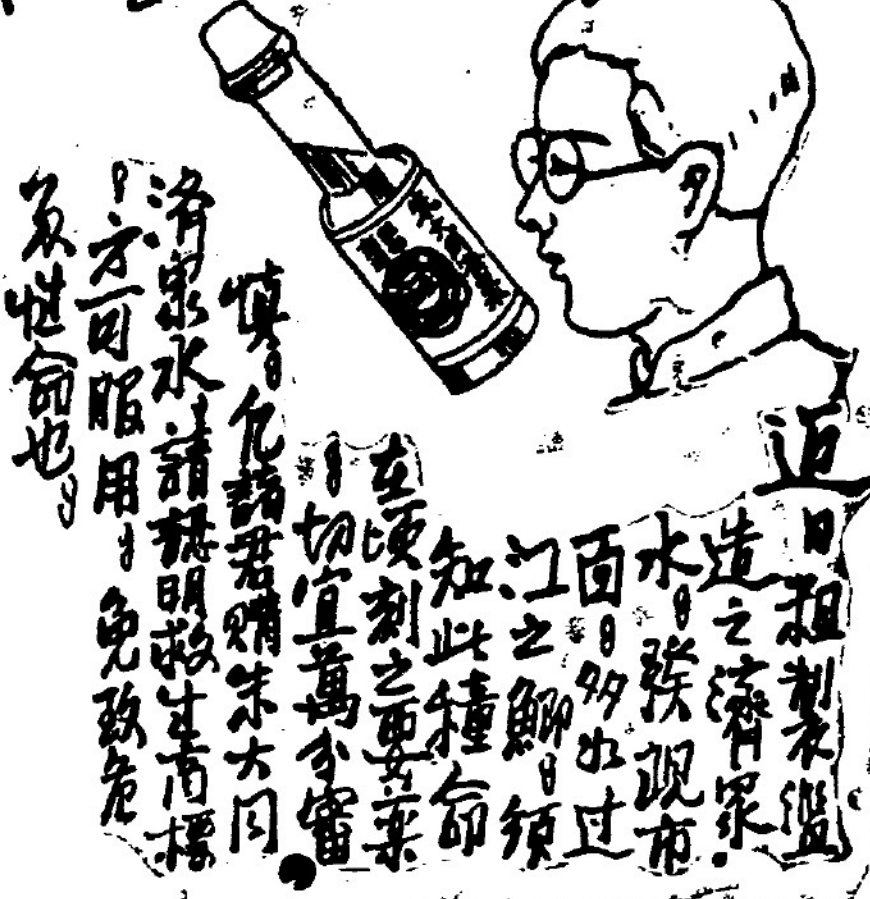 近日粗製濫
造之濟眾
水。發現市
面。多如过
江之鯽。須
知此種命
在頃刻之要藥
。切宜萬分審
慎。凡諸君購朱大同
济眾水請認明救生商標
。方可服用。免致危
及性命也。